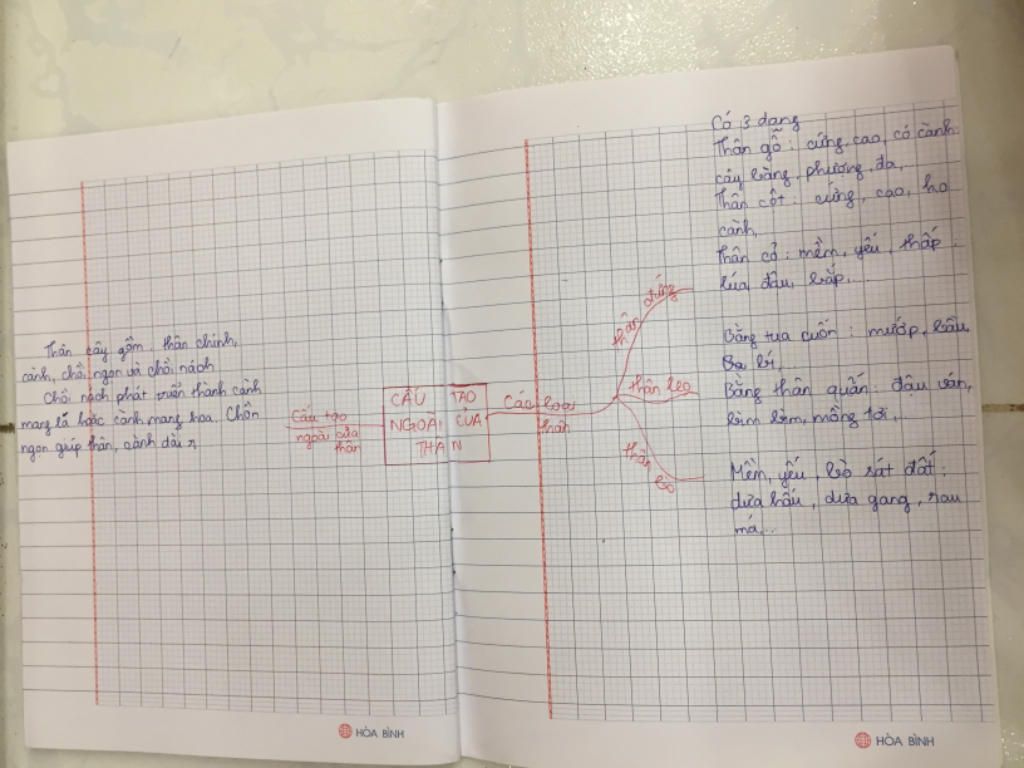 Thân cây gồm: thân chính,
cành, chồi ngọn và chồi nách
Chồi nách phát triển thành cành
mang lá hoặc cành mang hoa. Chồn
ngọn giúp thân, cành dài r,
Cấu tạo
ngoài của
thân
CẤU TẠO
NGOÀI CỦA
THÂN
Các loại
thân
thân đứng
thân leo
thân bò
Có 3 dạng
Thân gỗ: cứng, cao, có cành:
cây bàng, phượng, đa,...
Thân cột: cứng, cao, ko
cành,
Thân cỏ: mềm, yếu, thấp:
lúa, đậu, bắp,...
Bằng tua cuốn: mướp, bầu
bí,
Bằng thân quấn: đậu ván,
bìm bìm, mồng tơi,
Mềm, yếu, bò sát đất:
dưa hấu, dưa gang, rau
má,...
HÒA BÌNH
HÒA BÌNH